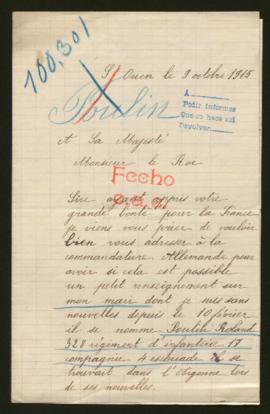 100,301
St Ouen le 9 octobre 1915
Poulin
A
Pedir informes
Que se hace así
Devolver
A Sa Majesté
Monsieur le Roe
Fecho
Sire ayant appris votre
grande bonté pour la France
je viens vous prier de vouloir
bien vous adresser à la
commandature Allemande pour
avoir si cela est possible
un petit renseignement sur
mon mari dont je suis sans
nouvelles depuis le 10 février
il se nomme Poulin Roland
328 régiment d'infanterie 17
compagnie 4 escouade se
trouvait dans l'Argonne lors
de ses nouvelles.